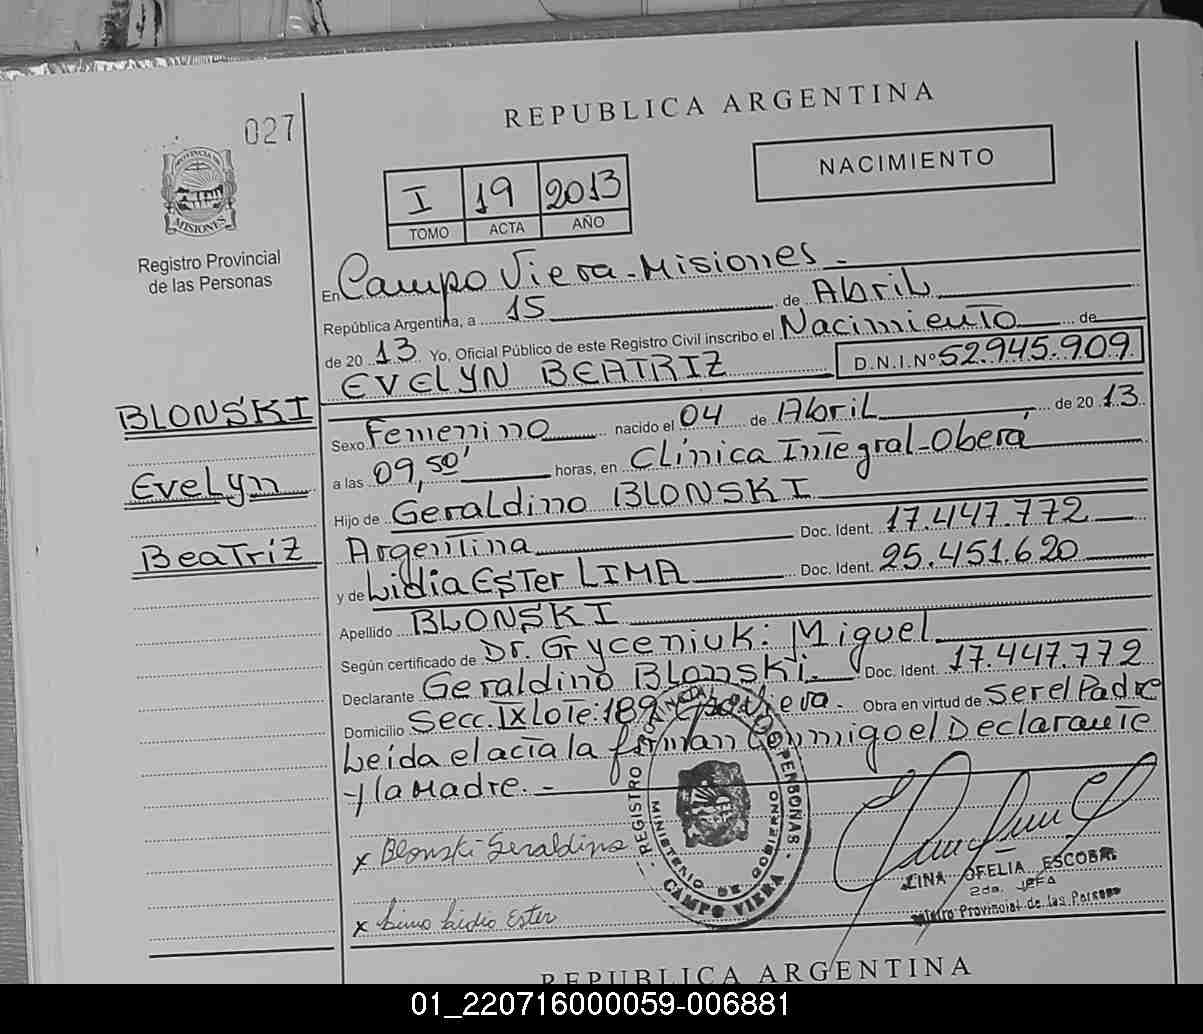 027
REPUBLICA ARGENTINA
NACIMIENTO
PROVINCIA DE
MISIONES
I 19 2013
TOMO ACTA AÑO
Registro Provincial
de las Personas
En Campo Viera - Misiones -
República Argentina, a 15 de Abril
de 20 13 Yo, Oficial Público de este Registro Civil inscribo el Nacimiento de
EVELYN BEATRIZ D.N.I.Nº 52.945.909
BLONSKI
Evelyn
Beatriz
Sexo Femenino nacido el 04 de Abril de 20 13
a las 09,50' horas, en Clínica Integral - Oberá
Hijo de Geraldino BLONSKI
Argentina Doc. Ident. 17.447.772
y de Lidia Ester LIMA Doc. Ident. 25.451.620
Apellido BLONSKI
Según certificado de Dr. Gryceniuk: Miguel
Declarante Geraldino Blonski. Doc. Ident. 17.447.772
Domicilio Secc. IX Lote: 189 Viera. Obra en virtud de Ser el Padre
Leída el acta la firman conmigo el Declarante
y la Madre. -
x Blonski Geraldino
x Lima Lidia Ester
REGISTRO PROVINCIAL DE LAS PERSONAS
MINISTERIO DE GOBIERNO
CAMPO VIERA
LINA OFELIA ESCOBAR
2da. JEFA
Registro Provincial de las Personas
REPUBLICA ARGENTINA
01_220716000059-006881